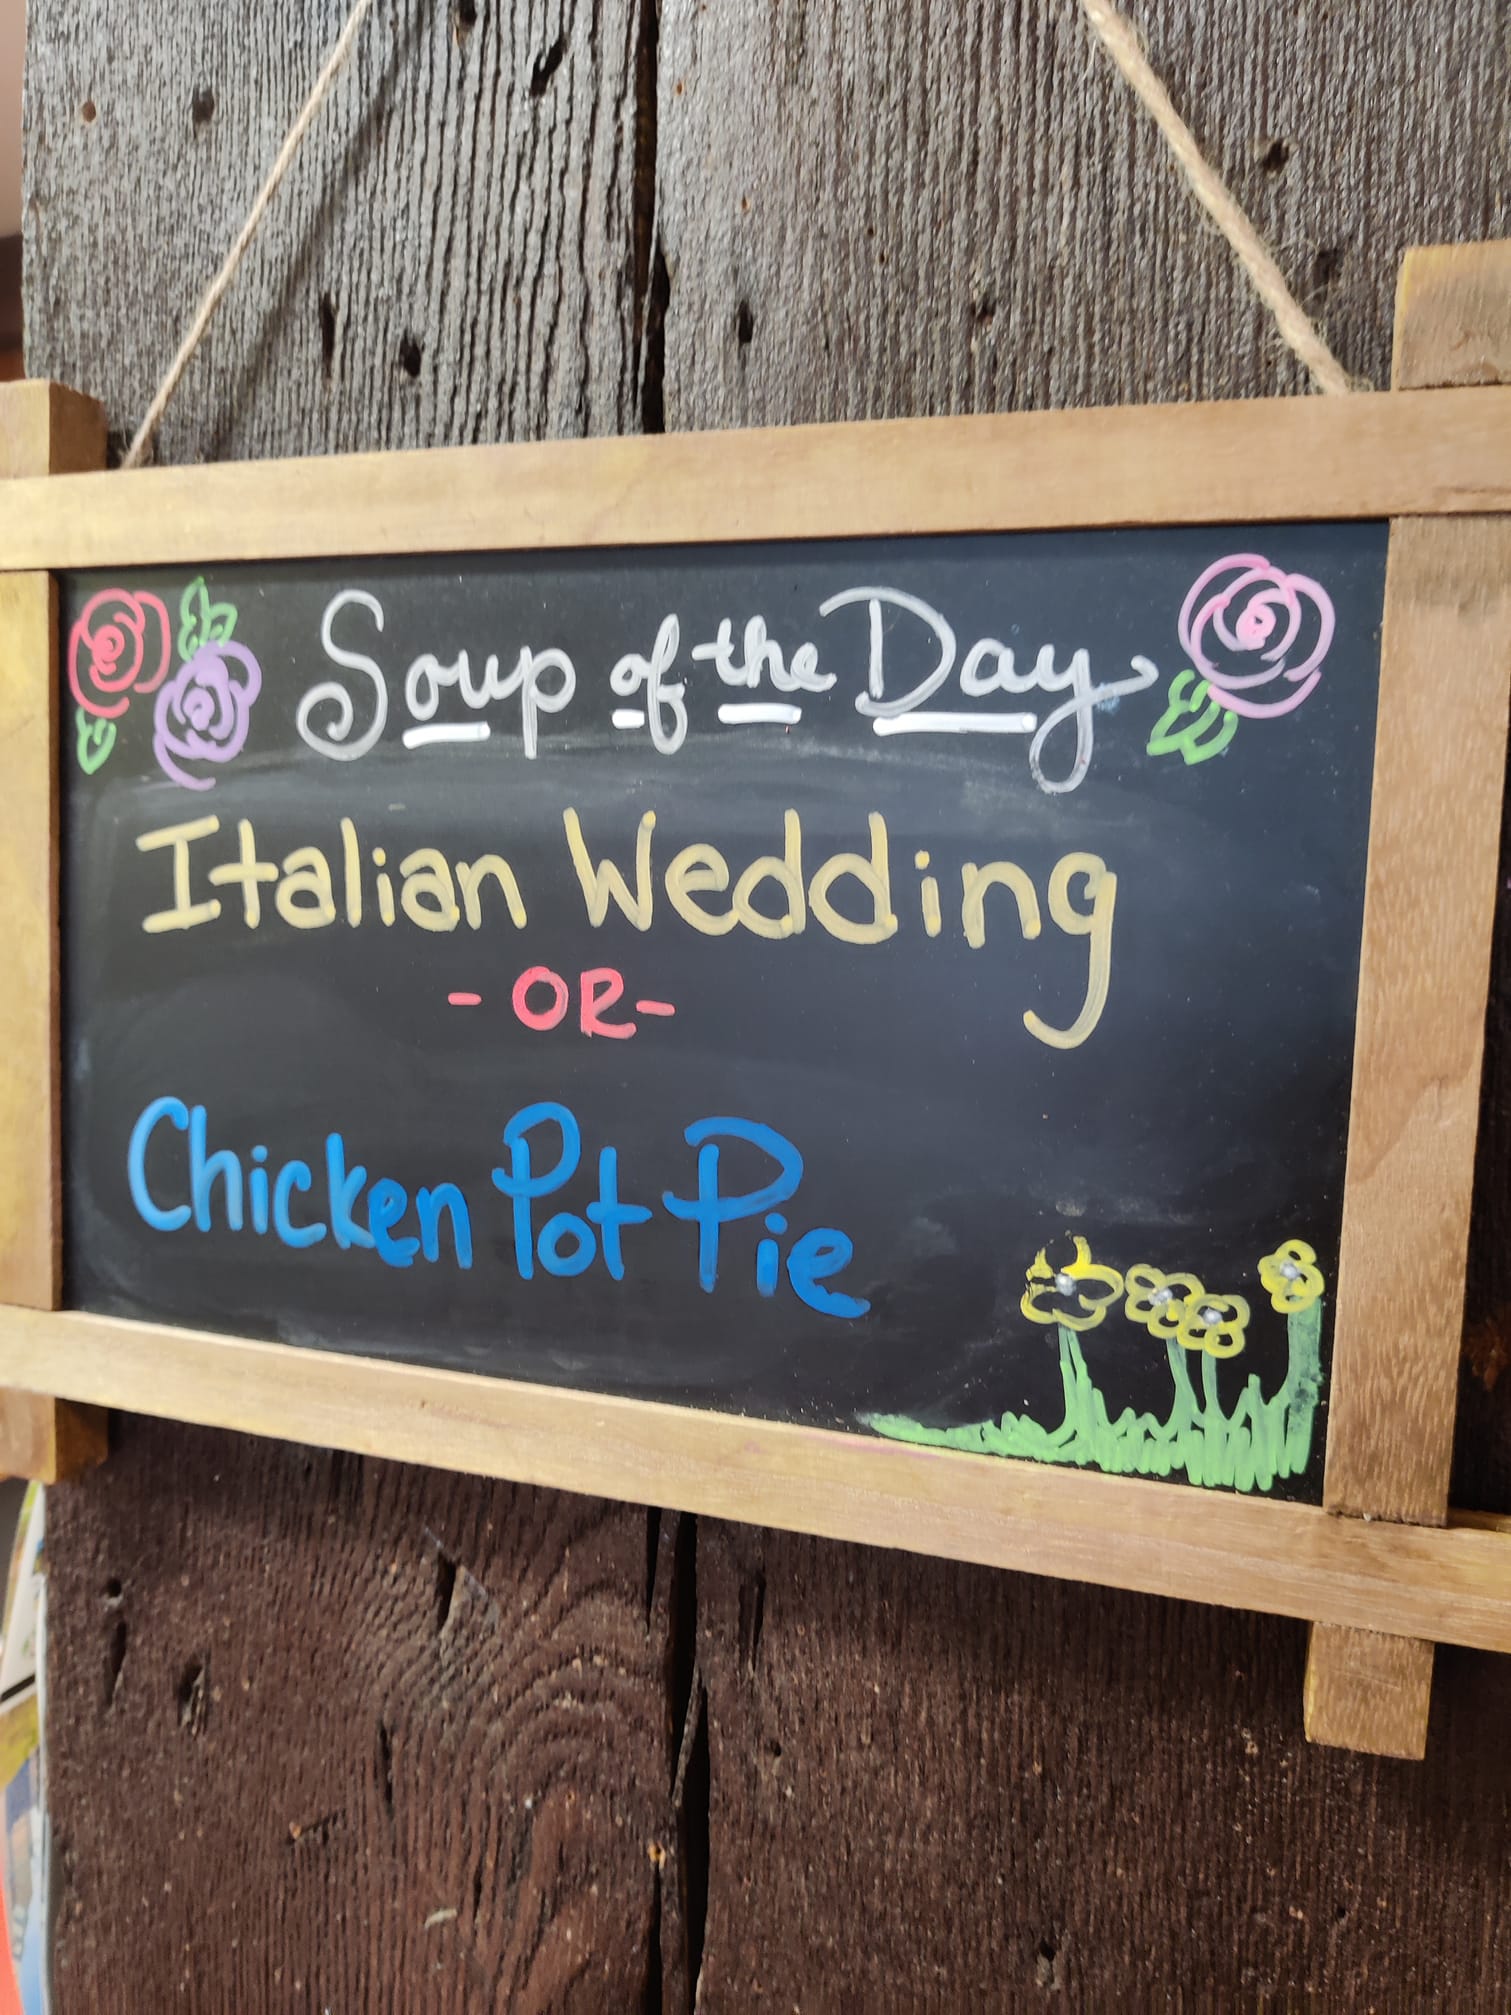 Soup of the Day
Italian Wedding
-OR-
Chicken Pot Pie